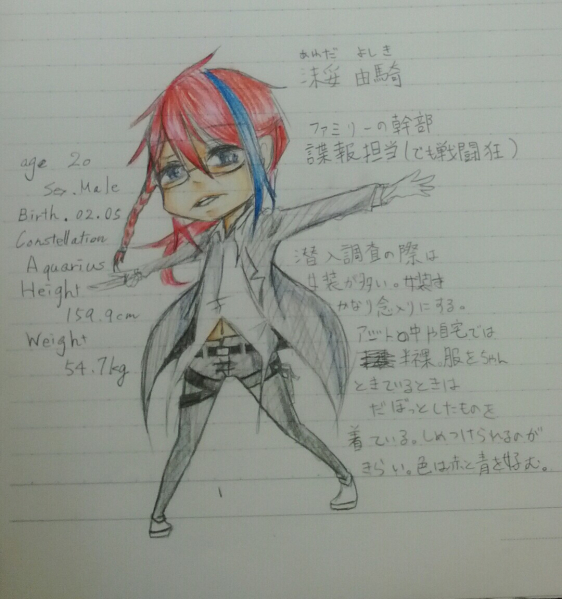 あれだ よしき
沫妥 由騎
ファミリーの幹部
諜報担当(でも戦闘狂)
age 20
Sex. Male
Birth. 02.05
Constellation
Aquarius
Height
159.9cm
Weight
54.7kg
潜入調査の際は
女装が多い。女装は
かなり念入りにする。
アジトの中や自宅では
半裸。服をちゃん
ときているときは
だぼっとしたものを
着ている。しめつけられるのが
きらい。色は赤と青を好む。